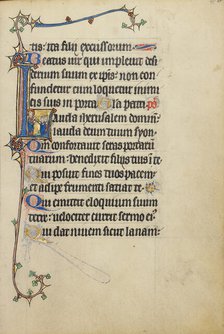 tis ita filij excussorum.
Beatus uir qui impleuit desi
derium suum ex ipis non con
fundetur cum loquetur inimi
cis suis in porta
Lauda iherusalem dominum
lauda deum tuum syon
Qm confortauit seras portarum
tuarum benedixit filijs tuis i te
Qui posuit fines tuos pacem
et adipe frumenti satiat te
Qui emittit eloquium suum
terre uelociter currit sermo eius
Qui dat niuem sicut lanam